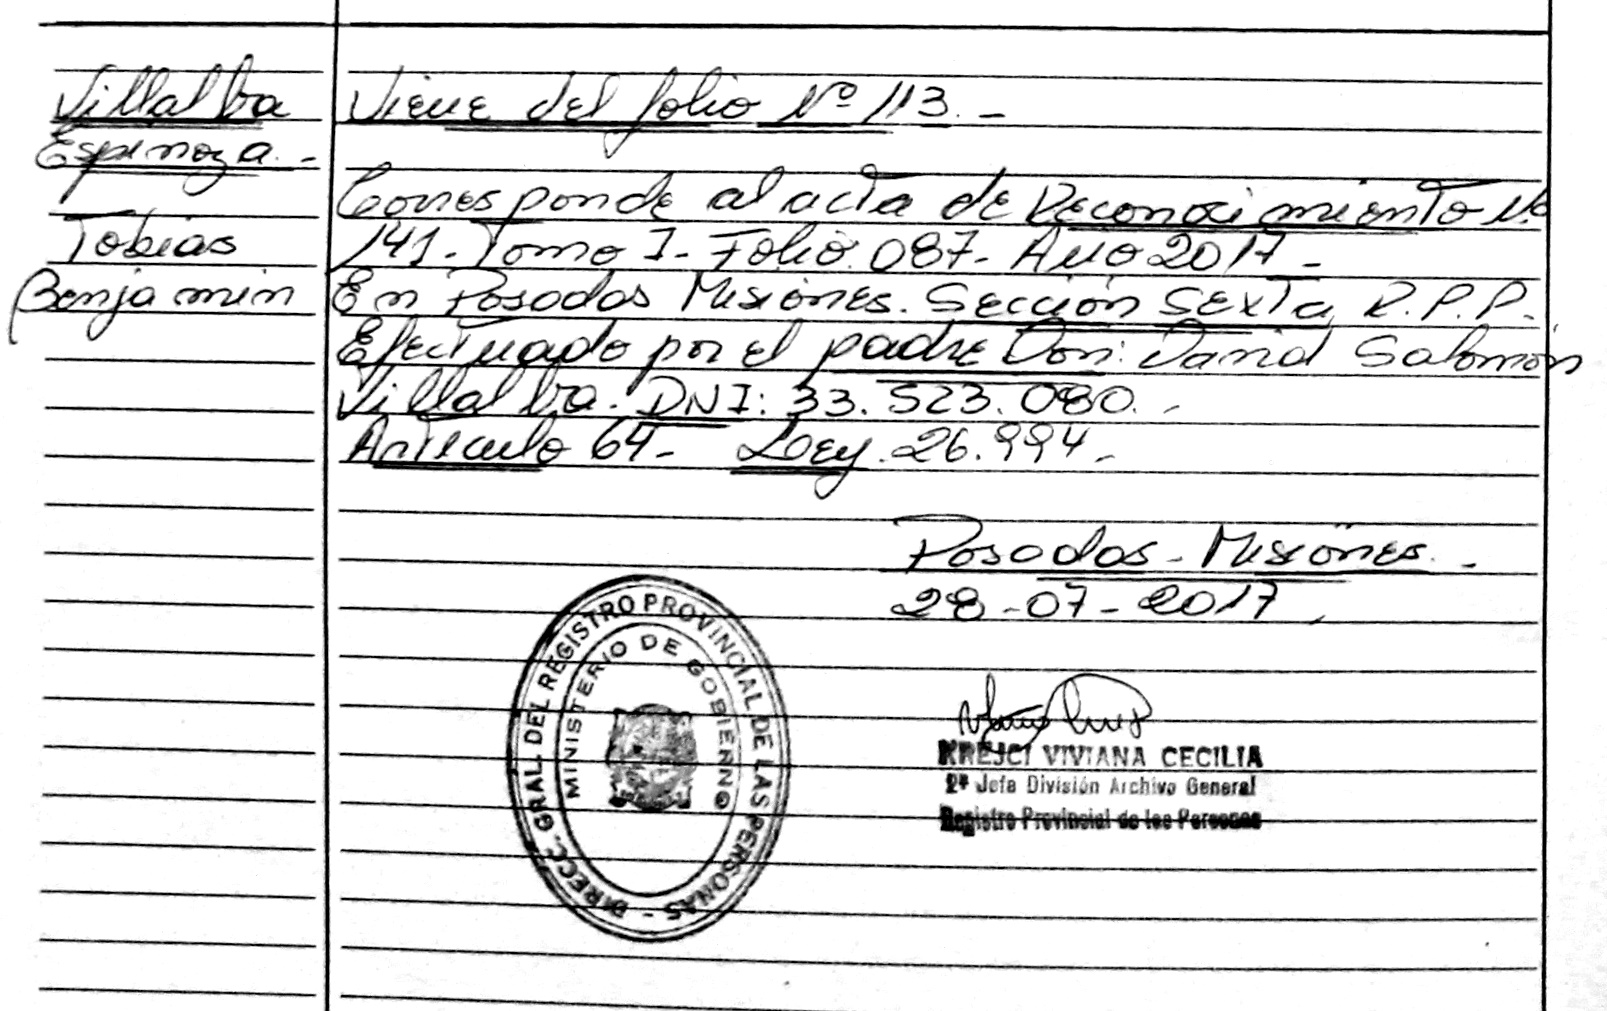 Villalba
Espinoza.-
Tobias
Benjamin
Viene del folio Nº 113.-
Corresponde al acta de Reconocimiento Nº
141.- Tomo I- Folio: 087- Año 2017-
En Posadas Misiones. Sección Sexta R.P.P.
Efectuado por el padre Don: David Salomón
Villalba. DNI: 33.523.080.-
Artículo 64- Ley. 26.994-
Posadas-Misiones.-
28-07-2017
DIRECC. GRAL. DEL REGISTRO PROVINCIAL DE LAS PERSONAS -
MINISTERIO DE GOBIERNO
KREJCI VIVIANA CECILIA
2ª Jefa División Archivo General
Registro Provincial de las Personas